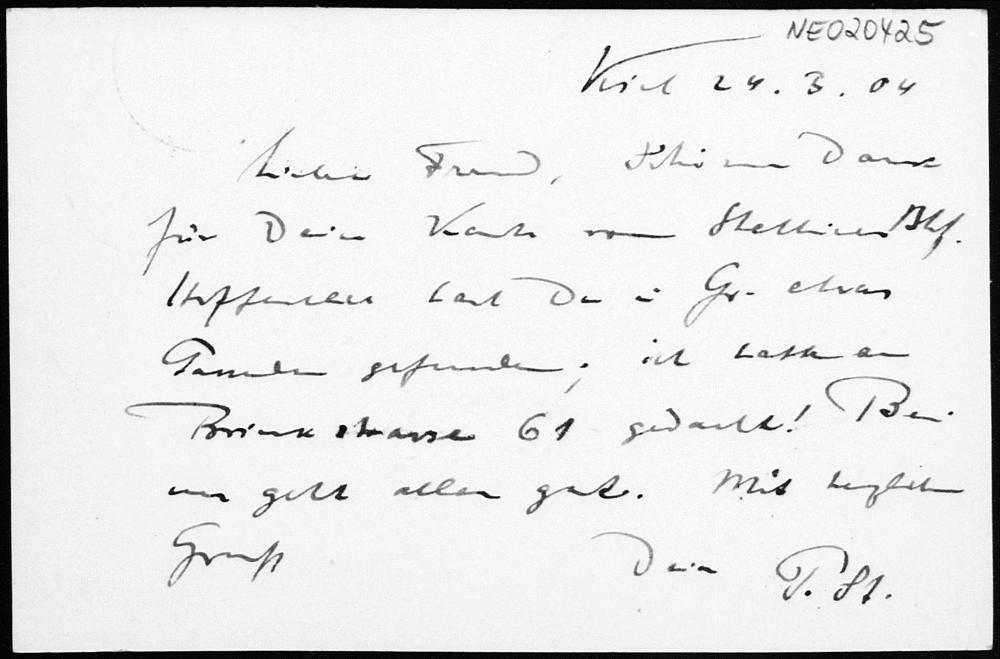 NEO20425
Kiel 24. 3. 04
Lieber Freund, Schönen Dank
für Deine Karte vom Stettiner Bhf.
Hoffentlich hast Du in Gr. etwas
Passendes gefunden; ich hatte an
Brinkstrasse 61 gedacht! Bei
uns geht alles gut. Mit herzlichem
Gruß Dein P. St.